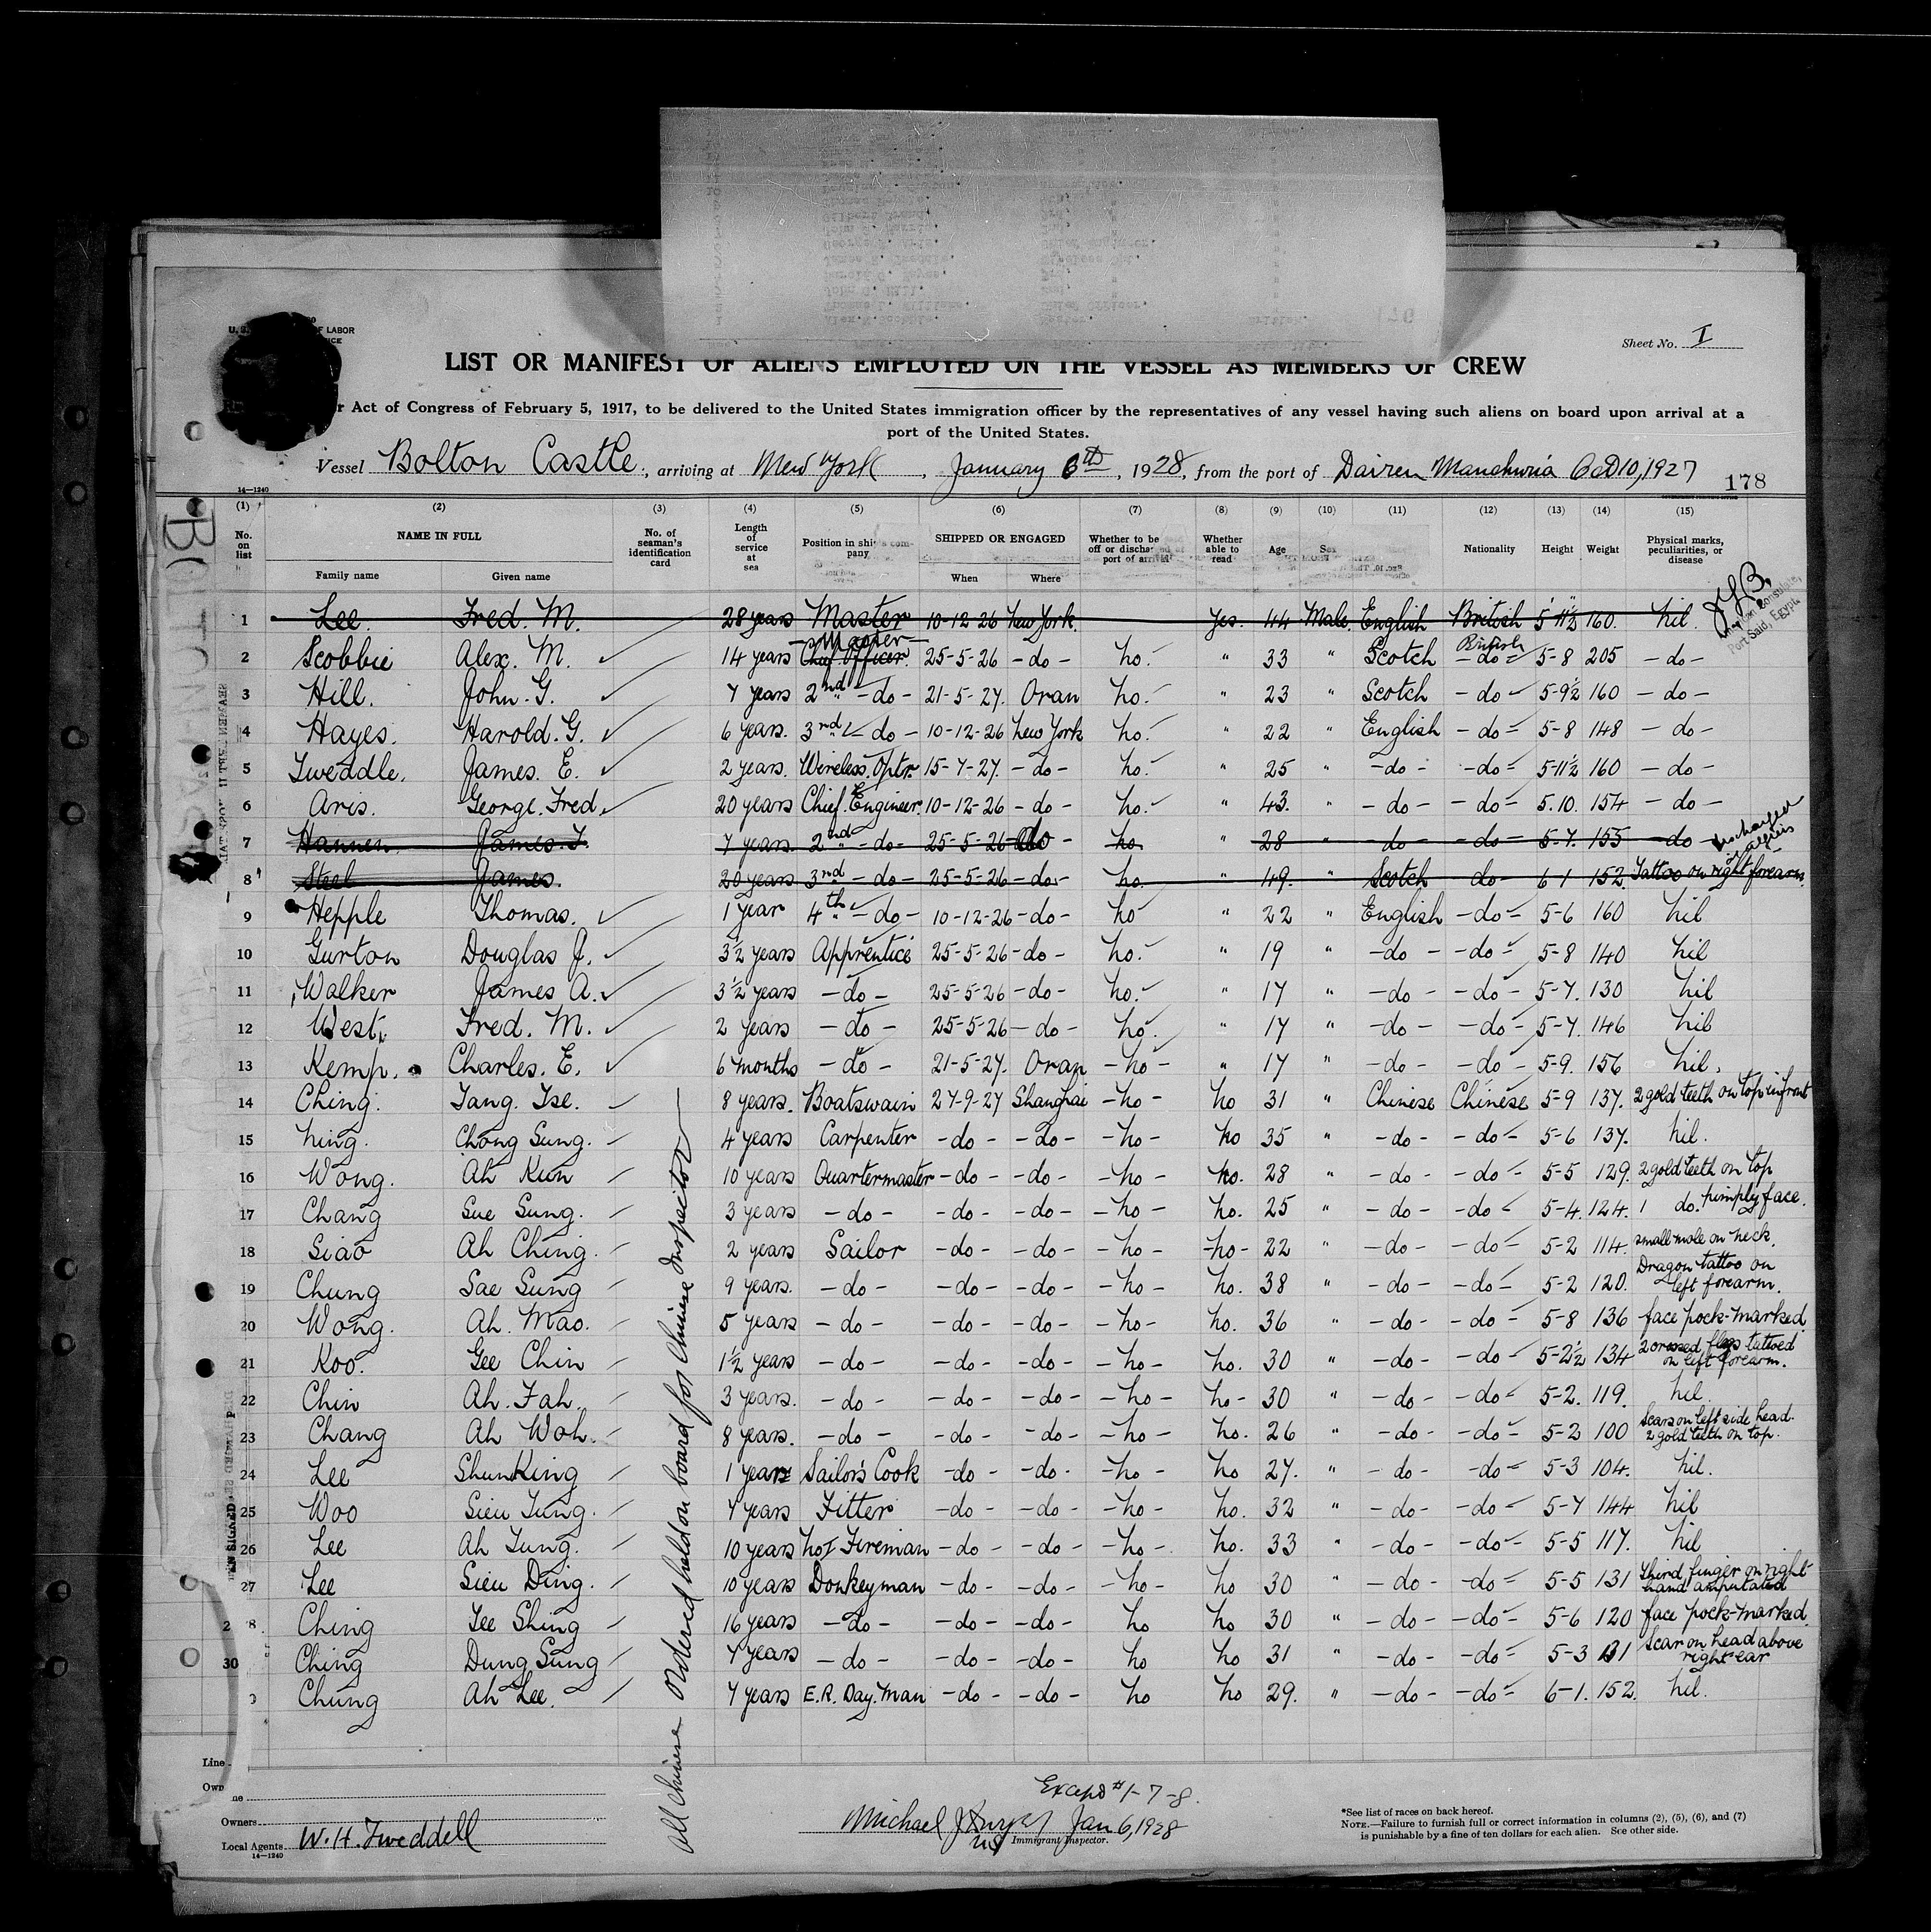 Sheet No. I
LIST OR MANIFEST OF ALIENS EMPLOYED ON THE VESSEL AS MEMBERS OF CREW
Act of Congress of February 5, 1917, to be delivered to the United States immigration officer by the representatives of any vessel having such aliens on board upon arrival at a
port of the United States.
Vessel Bolton Castle, arriving at New York, January 6th, 1928, from the port of Dairen Manchuria Oct 10, 1927
178
14—1240
(1) (2) (3) (4) (5) (6) (7) (8) (9) (10) (11) (12) (13) (14) (15)
No. on list NAME IN FULL Family name Given name No. of seaman's identification card Length of service at sea Position in ship's company SHIPPED OR ENGAGED When Where Whether to be off or discharged at port of arrival Whether able to read Age Sex Nationality Height Weight Physical marks, peculiarities, or disease
J.L.B.
American Consulate, Port Said, Egypt.
1 Lee. Fred. M. 28 years Master 10-12-26 New York. Yes. 44 Male. English British 5'11½" 160. Nil.
2 Scobbie Alex. M. 14 years Chief Officer Master 25-5-26 -do- No. " 33 " Scotch British -do- 5-8 205 -do-
3 Hill. John. G. 7 years 2nd -do- 21-5-27. Oran No. " 23 " Scotch -do- 5-9½ 160 -do-
4 Hayes. Harold. G. 6 years. 3rd -do- 10-12-26 New York No. " 22 " English -do- 5-8 148 -do-
5 Tweddle. James. E. 2 years. Wireless. Optr. 15-7-27. -do- No. " 25 " -do- -do- 5-11½ 160 -do-
6 Aris. George. Fred. 20 years Chief Engineer. 10-12-26 -do- No. " 43. " -do- -do- 5.10. 154 -do-
7 Hannen. James. T. 7 years. 2nd -do- 25-5-26 -do- No. " 28 " -do- -do- 5-7. 155 -do- Discharged Algiers
8 Steel James. 20 years 3rd -do- 25-5-26 -do- No. " 49. " Scotch -do- 6-1 152. Tattoo on right forearm.
9 Hepple Thomas. 1 year 4th -do- 10-12-26 -do- No " 22 " English -do- 5-6 160 Nil
10 Gurton Douglas J. 3½ years Apprentice 25-5-26 -do- No. " 19 " -do- -do- 5-8 140 Nil
11 Walker James A. 3½ years -do- 25-5-26 -do- No. " 17 " -do- -do- 5-7. 130 Nil
12 West. Fred. M. 2 years -do- 25-5-26 -do- No. " 17 " -do- -do- 5-7. 146 Nil
13 Kemp. Charles. E. 6 months -do- 21-5-27. Oran -No- " 17 " -do- -do- 5-9. 156 Nil.
14 Ching. Tang. Tse. 8 years. Boatswain 27-9-27 Shanghai -No- No 31 " Chinese Chinese 5-9 137. 2 gold teeth on top in front
15 Ning. Chong Sung. 4 years Carpenter -do- -do- -No- No 35 " -do- -do- 5-6 137. Nil.
16 Wong. Ah Kun 10 years Quartermaster -do- -do- -No- No. 28 " -do- -do- 5-5 129. 2 gold teeth on top
17 Chang Sue Sung. 3 years -do- -do- -do- -No- No. 25 " -do- -do- 5-4. 124. 1 do. pimply face.
18 Siao Ah Ching. 2 years Sailor -do- -do- -No- -No- 22 " -do- -do- 5-2 114. small mole on neck.
19 Chung Sae Sung 9 years. -do- -do- -do- -No- No. 38 " -do- -do- 5-2 120. Dragon tattoo on left forearm.
20 Wong. Ah. Mao. 5 years -do- -do- -do- -No- No. 36 " -do- -do- 5-8 136 face pock-marked
21 Koo. Gee Chin 1½ years -do- -do- -do- -No- No. 30 " -do- -do- 5-2½ 134 2 crossed flags tattooed on left forearm.
22 Chin Ah. Fah. 3 years. -do- -do- -do- -No- No- 30 " -do- -do- 5-2. 119. Nil.
23 Chang Ah Woh. 8 years. -do- -do- -do- -No- No. 26 " -do- -do- 5-2 100 Scars on left side head. 2 gold teeth on top.
24 Lee Shun King 1 year Sailor's Cook -do- -do- -No- No 27. " -do- -do- 5-3 104. Nil.
25 Woo Sieu Tung. 7 years Fitter -do- -do- -No- No. 32 " -do- -do- 5-7 144 Nil
26 Lee Ah Tung. 10 years No 1 Fireman -do- -do- -No- No. 33 " -do- -do- 5-5 117. Nil
27 Lee Sieu Ding. 10 years Donkeyman -do- -do- -No- No 30 " -do- -do- 5-5 131 Third finger on right hand amputated
28 Ching Tee Shing 16 years -do- -do- -do- No No 30 " -do- -do- 5-6 120 face pock-marked.
Ching Dung Sung 7 years -do- -do- -do- No No 31 " -do- -do- 5-3 Scar on head above right ear
30 Chung Ah Lee. 7 years E.R. Day. Man -do- -do- No No 29. " -do- -do- 6-1. 152. Nil.
All Chinese Ordered held on board for Chinese Inspector
Line
Owners
Local Agents W. H. Tweddell
14—1240
Except # 1-7-8.
Michael J. Jan 6, 1928
Immigrant Inspector.
*See list of races on back hereof.
NOTE.—Failure to furnish full or correct information in columns (2), (5), (6), and (7)
is punishable by a fine of ten dollars for each alien. See other side.